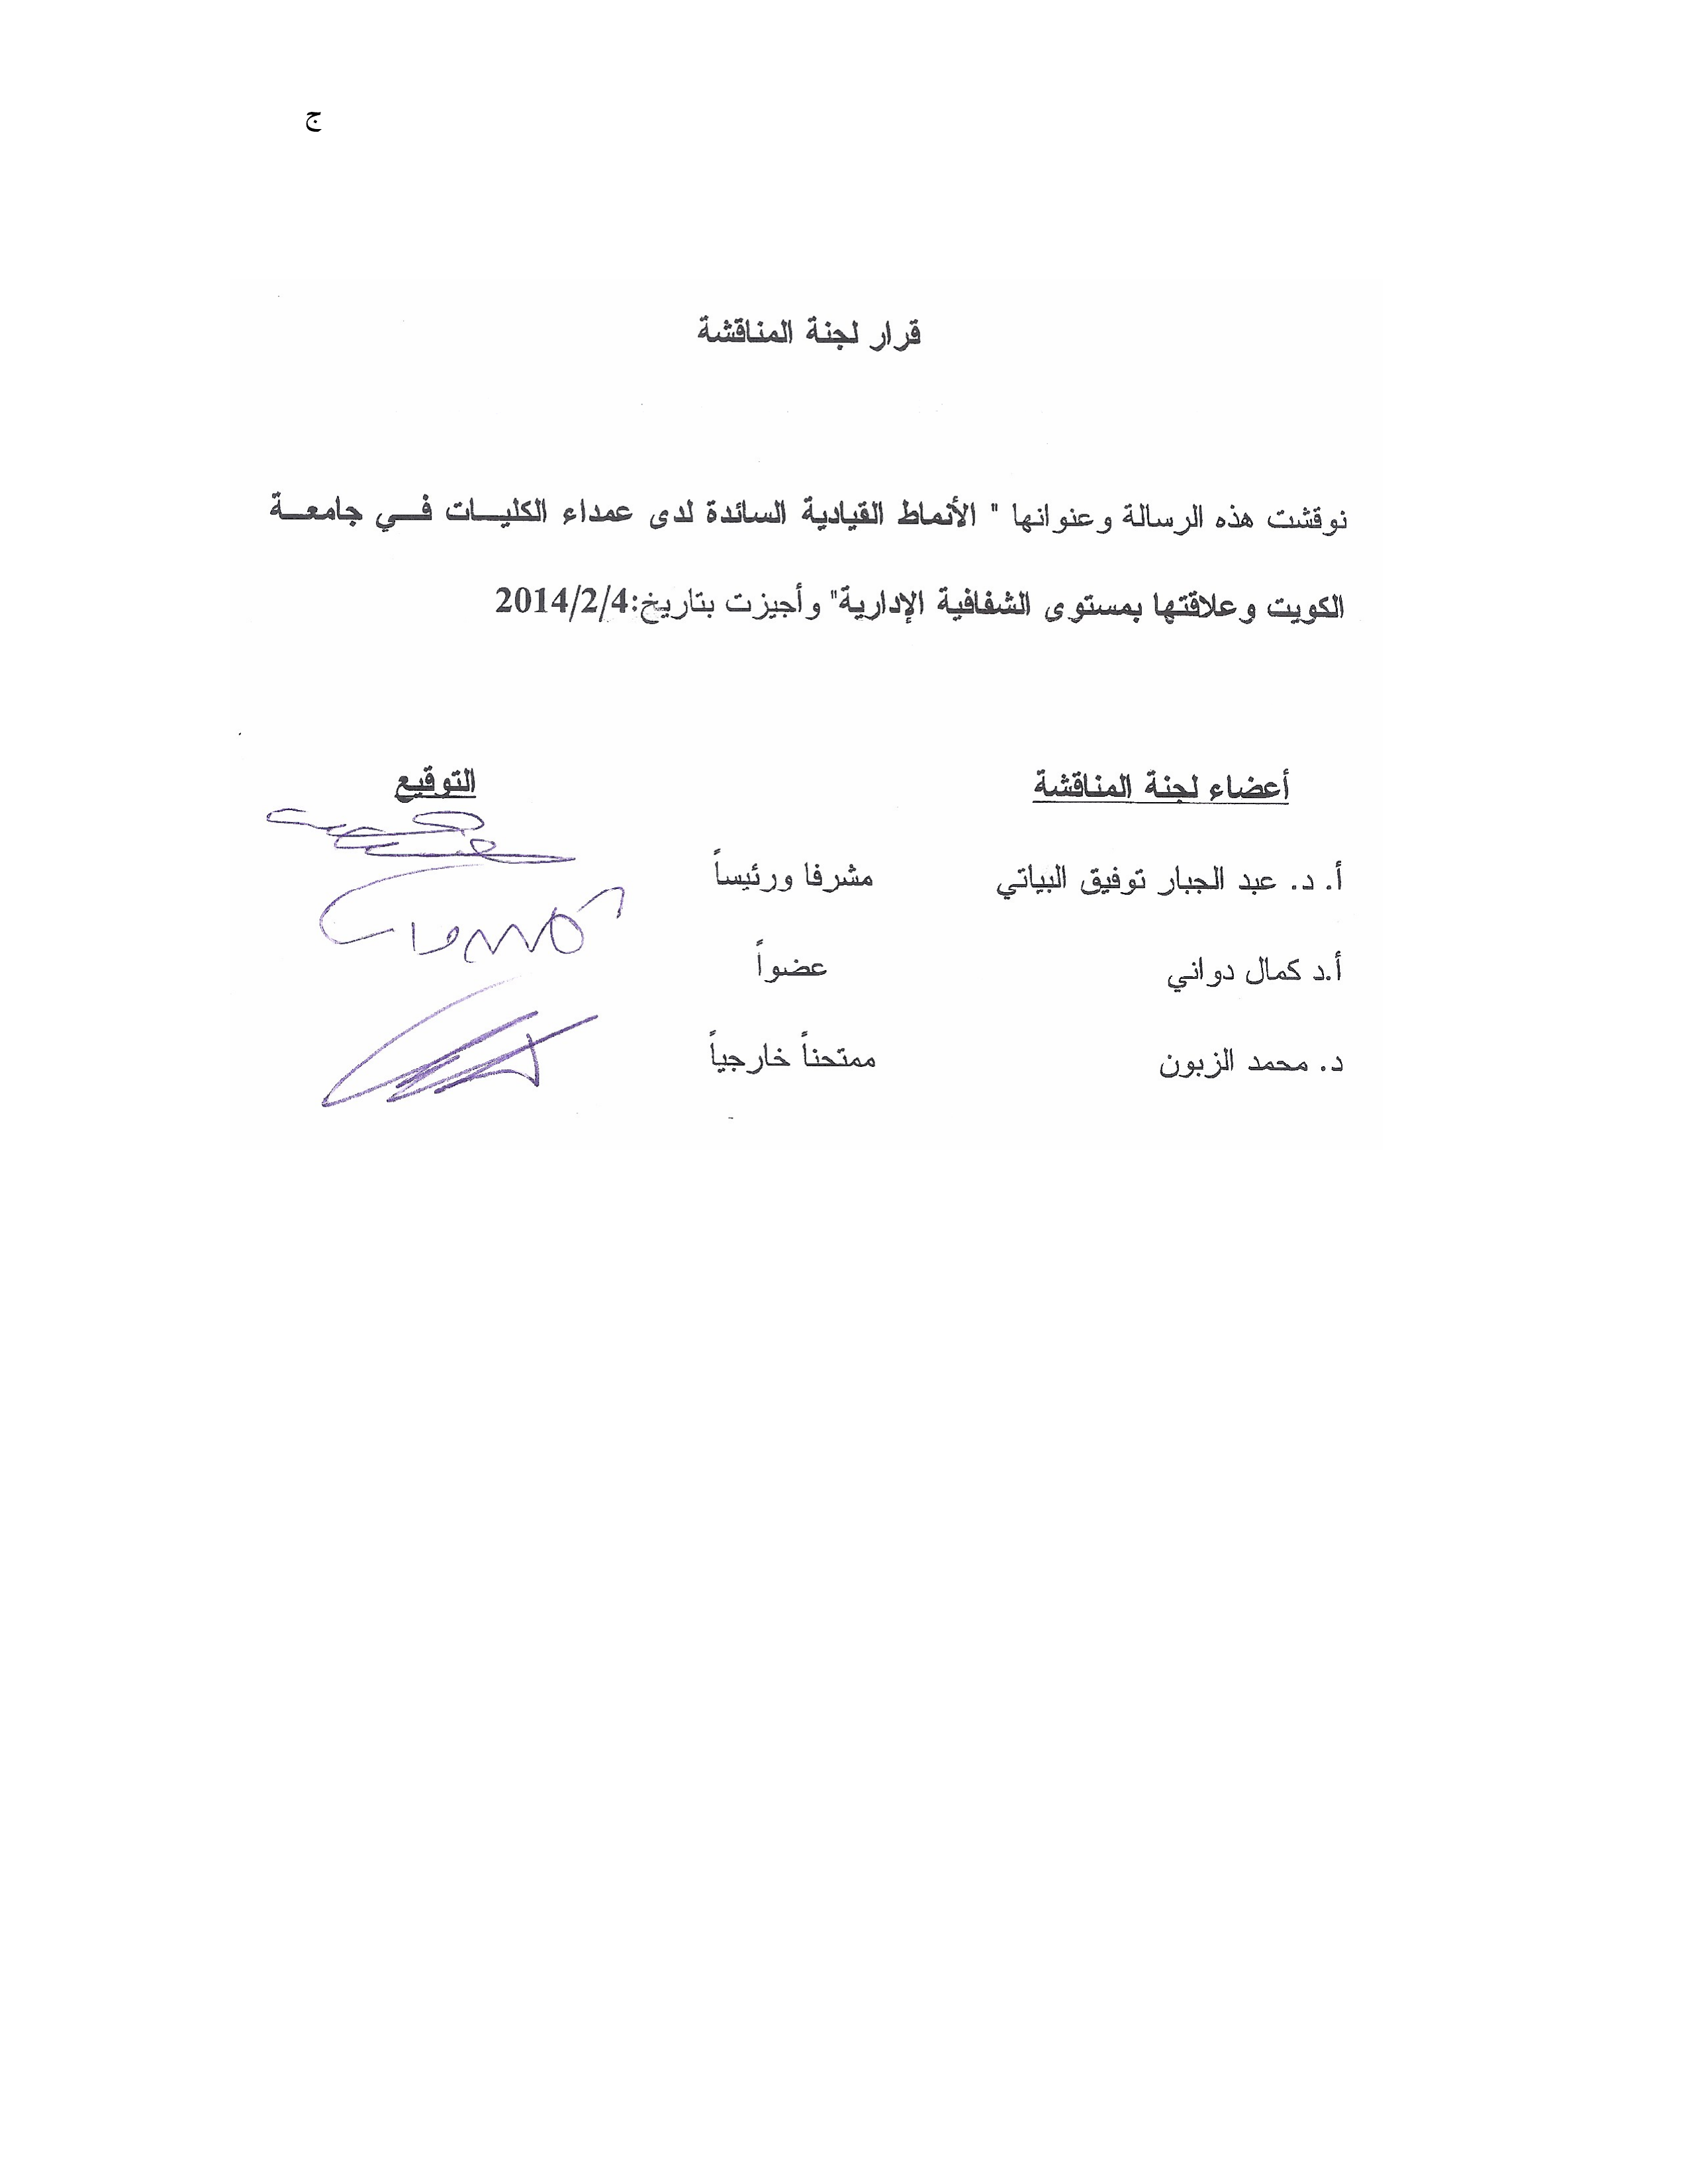 ج
قرار لجنة المناقشة
نوقشت هذه الرسالة وعنوانها " الأنماط القيادية السائدة لدى عمداء الكليـــات فـــي جامعـــة
الكويت وعلاقتها بمستوى الشفافية الإدارية" وأجيزت بتاريخ:2014/2/4
أعضاء لجنة المناقشة التوقيع
أ. د. عبد الجبار توفيق البياتي مشرفا ورئيساً
أ.د كمال دواني عضواً
د. محمد الزبون ممتحناً خارجياً